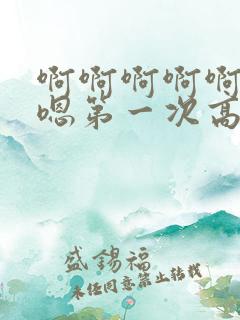 啊啊啊啊啊
嗯第一次高
盛錫福
未经同意禁止转载